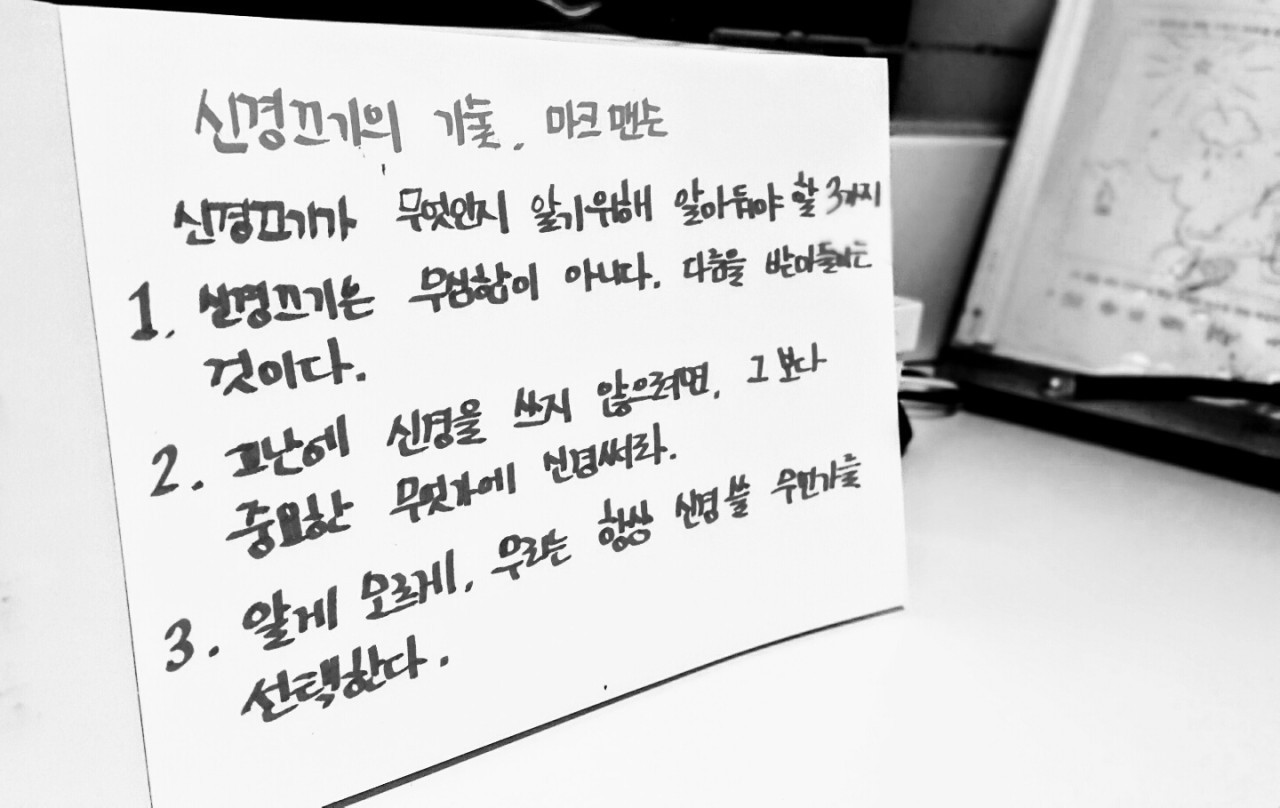 신경끄기의 기술. 마크 맨슨
신경끄기가 무엇인지 알기위해 알아둬야 할 3가지
1. 신경끄기는 무심함이 아니다. 다름을 받아들이는
것이다.
2. 고난에 신경을 쓰지 않으려면, 그보다
중요한 무엇가에 신경써라.
3. 알게 모르게, 우리는 항상 신경 쓸 무언가를
선택한다.